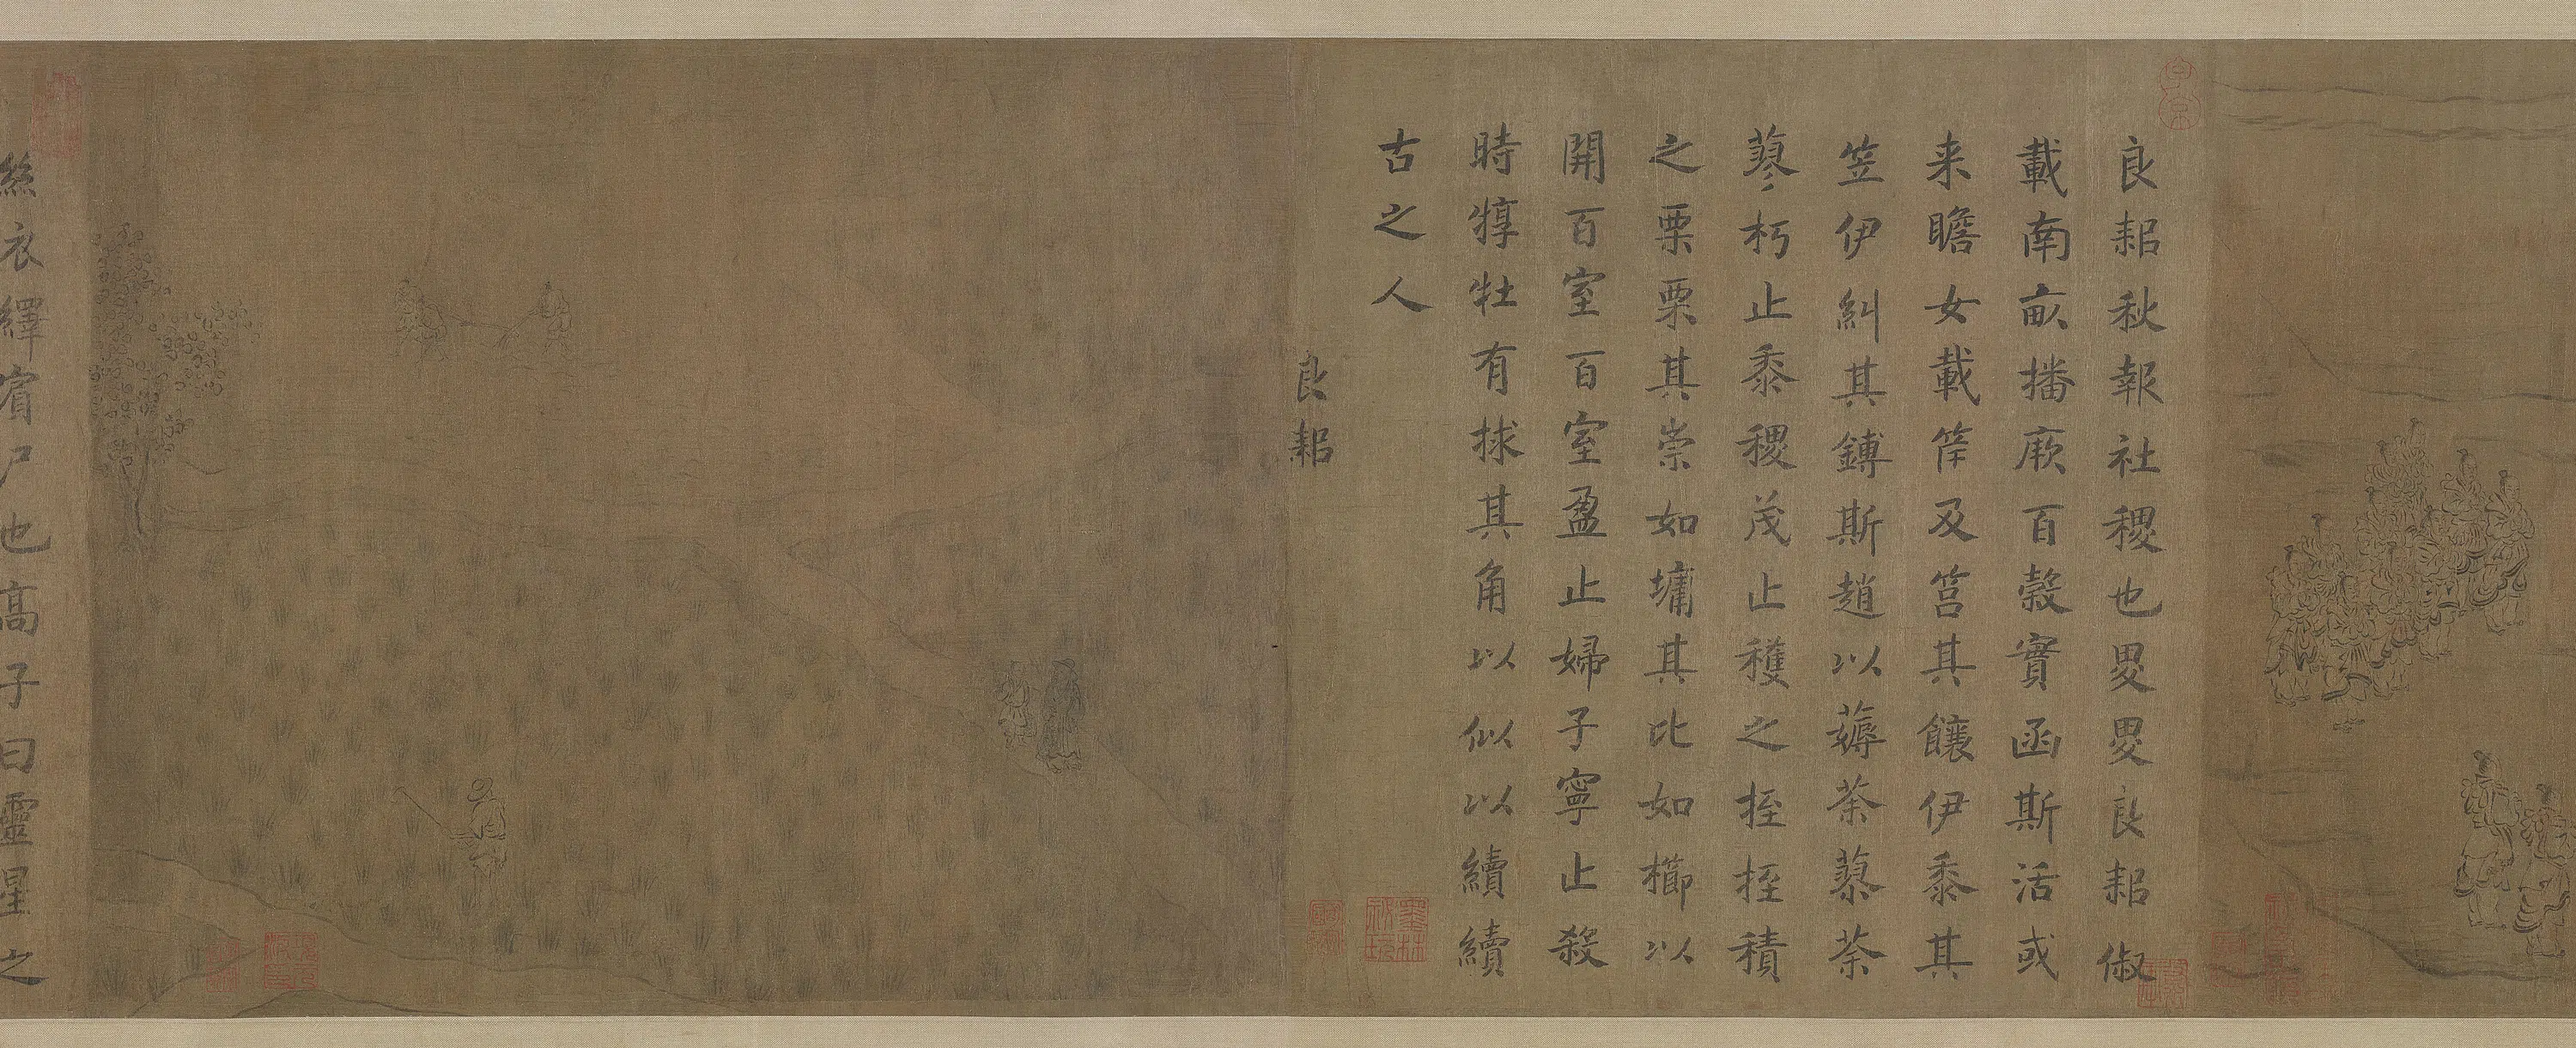 良耜秋報社稷也畟畟良耜俶
載南畝播厥百穀實函斯活或
来瞻女載筐及筥其饟伊黍其
笠伊糾其鎛斯趙以薅荼蓼荼
蓼朽止黍稷茂止穫之挃挃積
之栗栗其崇如墉其比如櫛以
開百室百室盈止婦子寧止殺
時犉牡有捄其角以似以續續
古之人
良耜
絲衣繹賓尸也高子曰靈星之